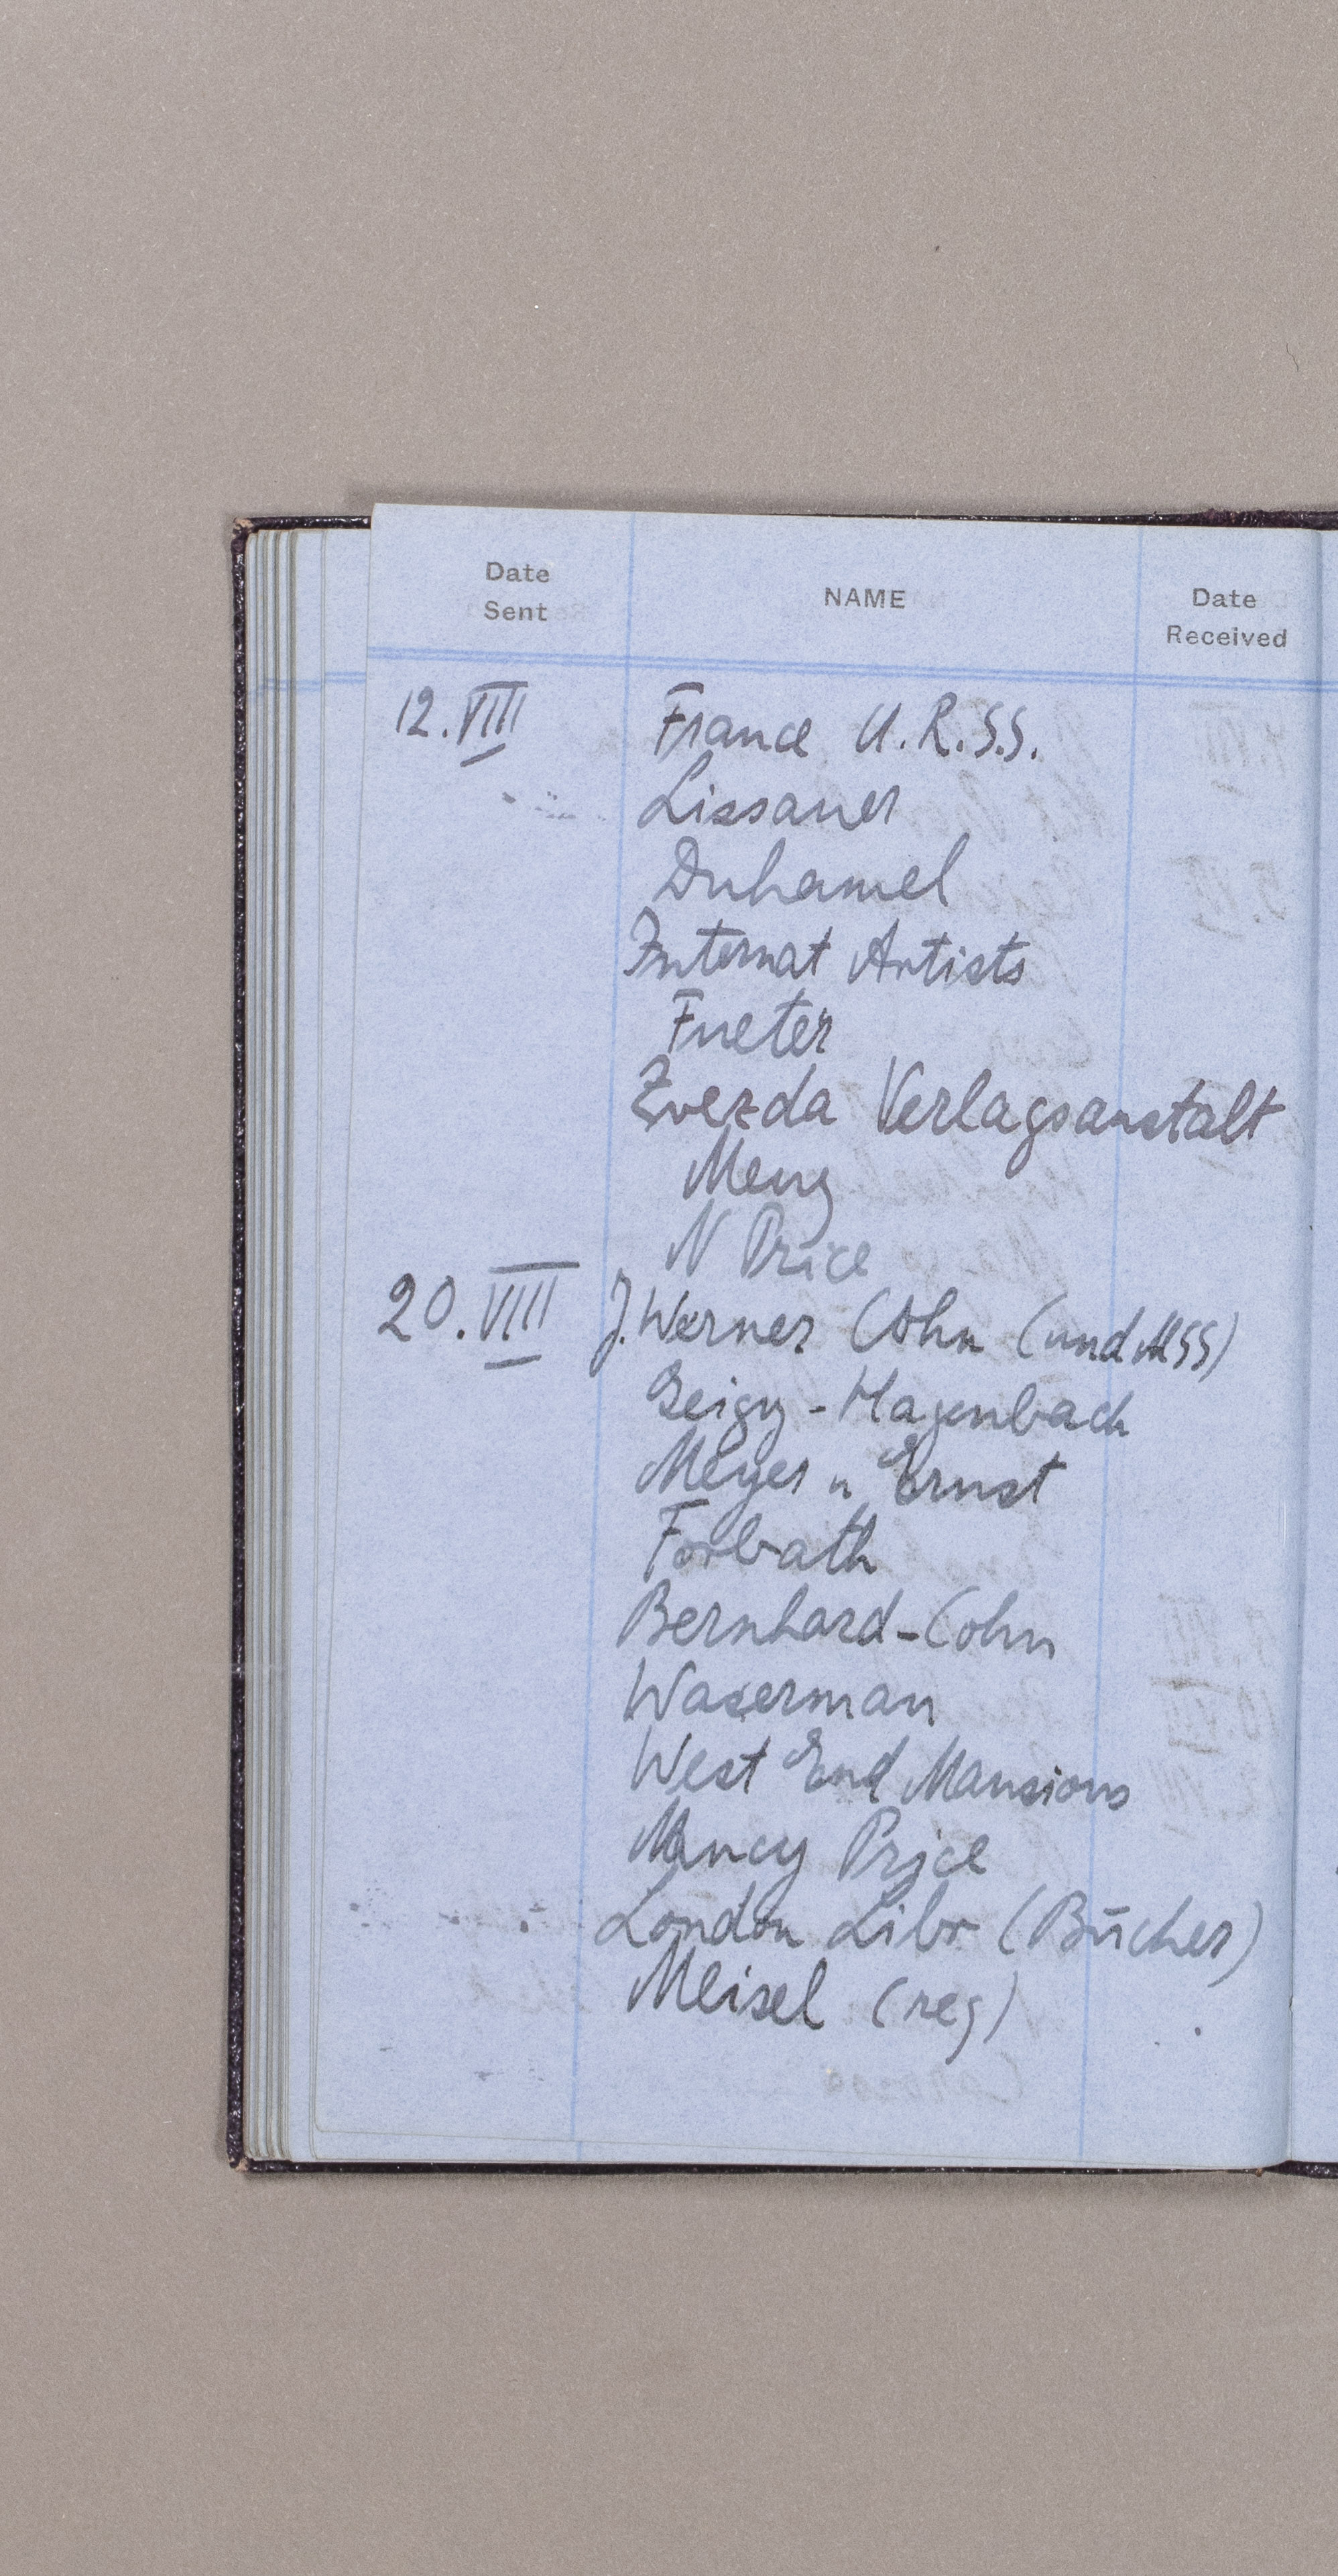 Date Sent NAME Date Received
12.VIII France U.R.S.S.
Lissauer
Duhamel
Internat Artists
Fueter
Zvezda Verlagsanstalt
Meng
N Price
20.VIII J. Werner Cohn (und MSS)
Geigy-Hagenbach
Meyer u Ernst
Forbath
Bernhard-Cohn
Waserman
West End Mansions
Nancy Price
London Libr (Bücher)
Meisel (reg)